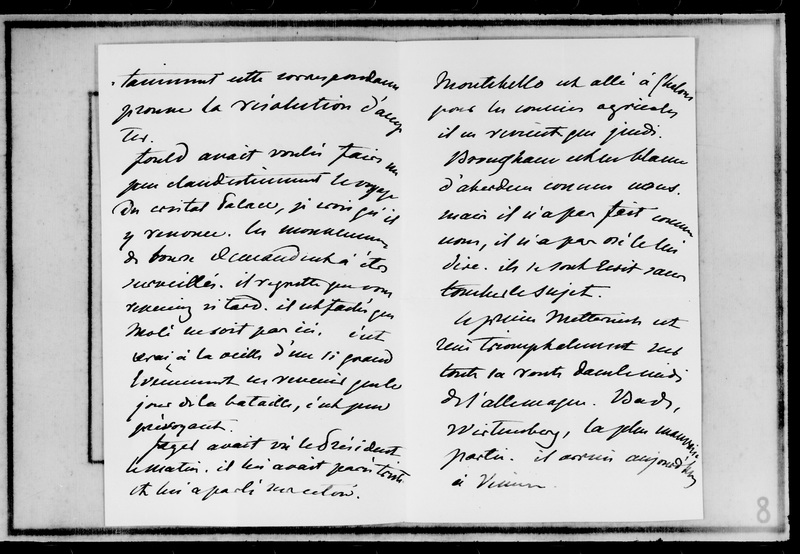 tamment cette correspondance
prouve la résolution d'accep
ter.
Fould avait voulu faire un
peu clandestinement le voyage
du cristal Palace, je crois qu'il
y renonce. les mouvemens
de bourse demandent à être
surveillés. il regrette que vous
reveniez si tard. il est fâché que
Molé ne soit pas ici. c'est
vrai à la veille d'un si grand
Evènement ne revenir que le
jour de la bataille, c'est peu
prévoyant.
Fagel avait vu le Président
le matin. il lui avait paru triste
et lui a parlé sur ce ton.
Montebello est allé à Chalons
pour les comices agricoles
il ne revient que jeudi.
Brougham est en blame
d'aberdeen comme nous.
mais il n'a pas fait comme
nous, il n'a pas osé le lui
dire. ils se sont écrit sans
toucher le sujet.
le prince Metternich est
reçu triomphalement sur
toute sa route dans le midi
de l'allemagne. Bade,
Wirtemberg, la plus mauvaise
partie. il arrive aujourd'hui
à Vienne.
8